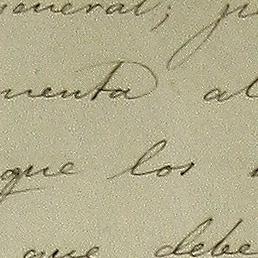 general; p
menta al
que los
que debe